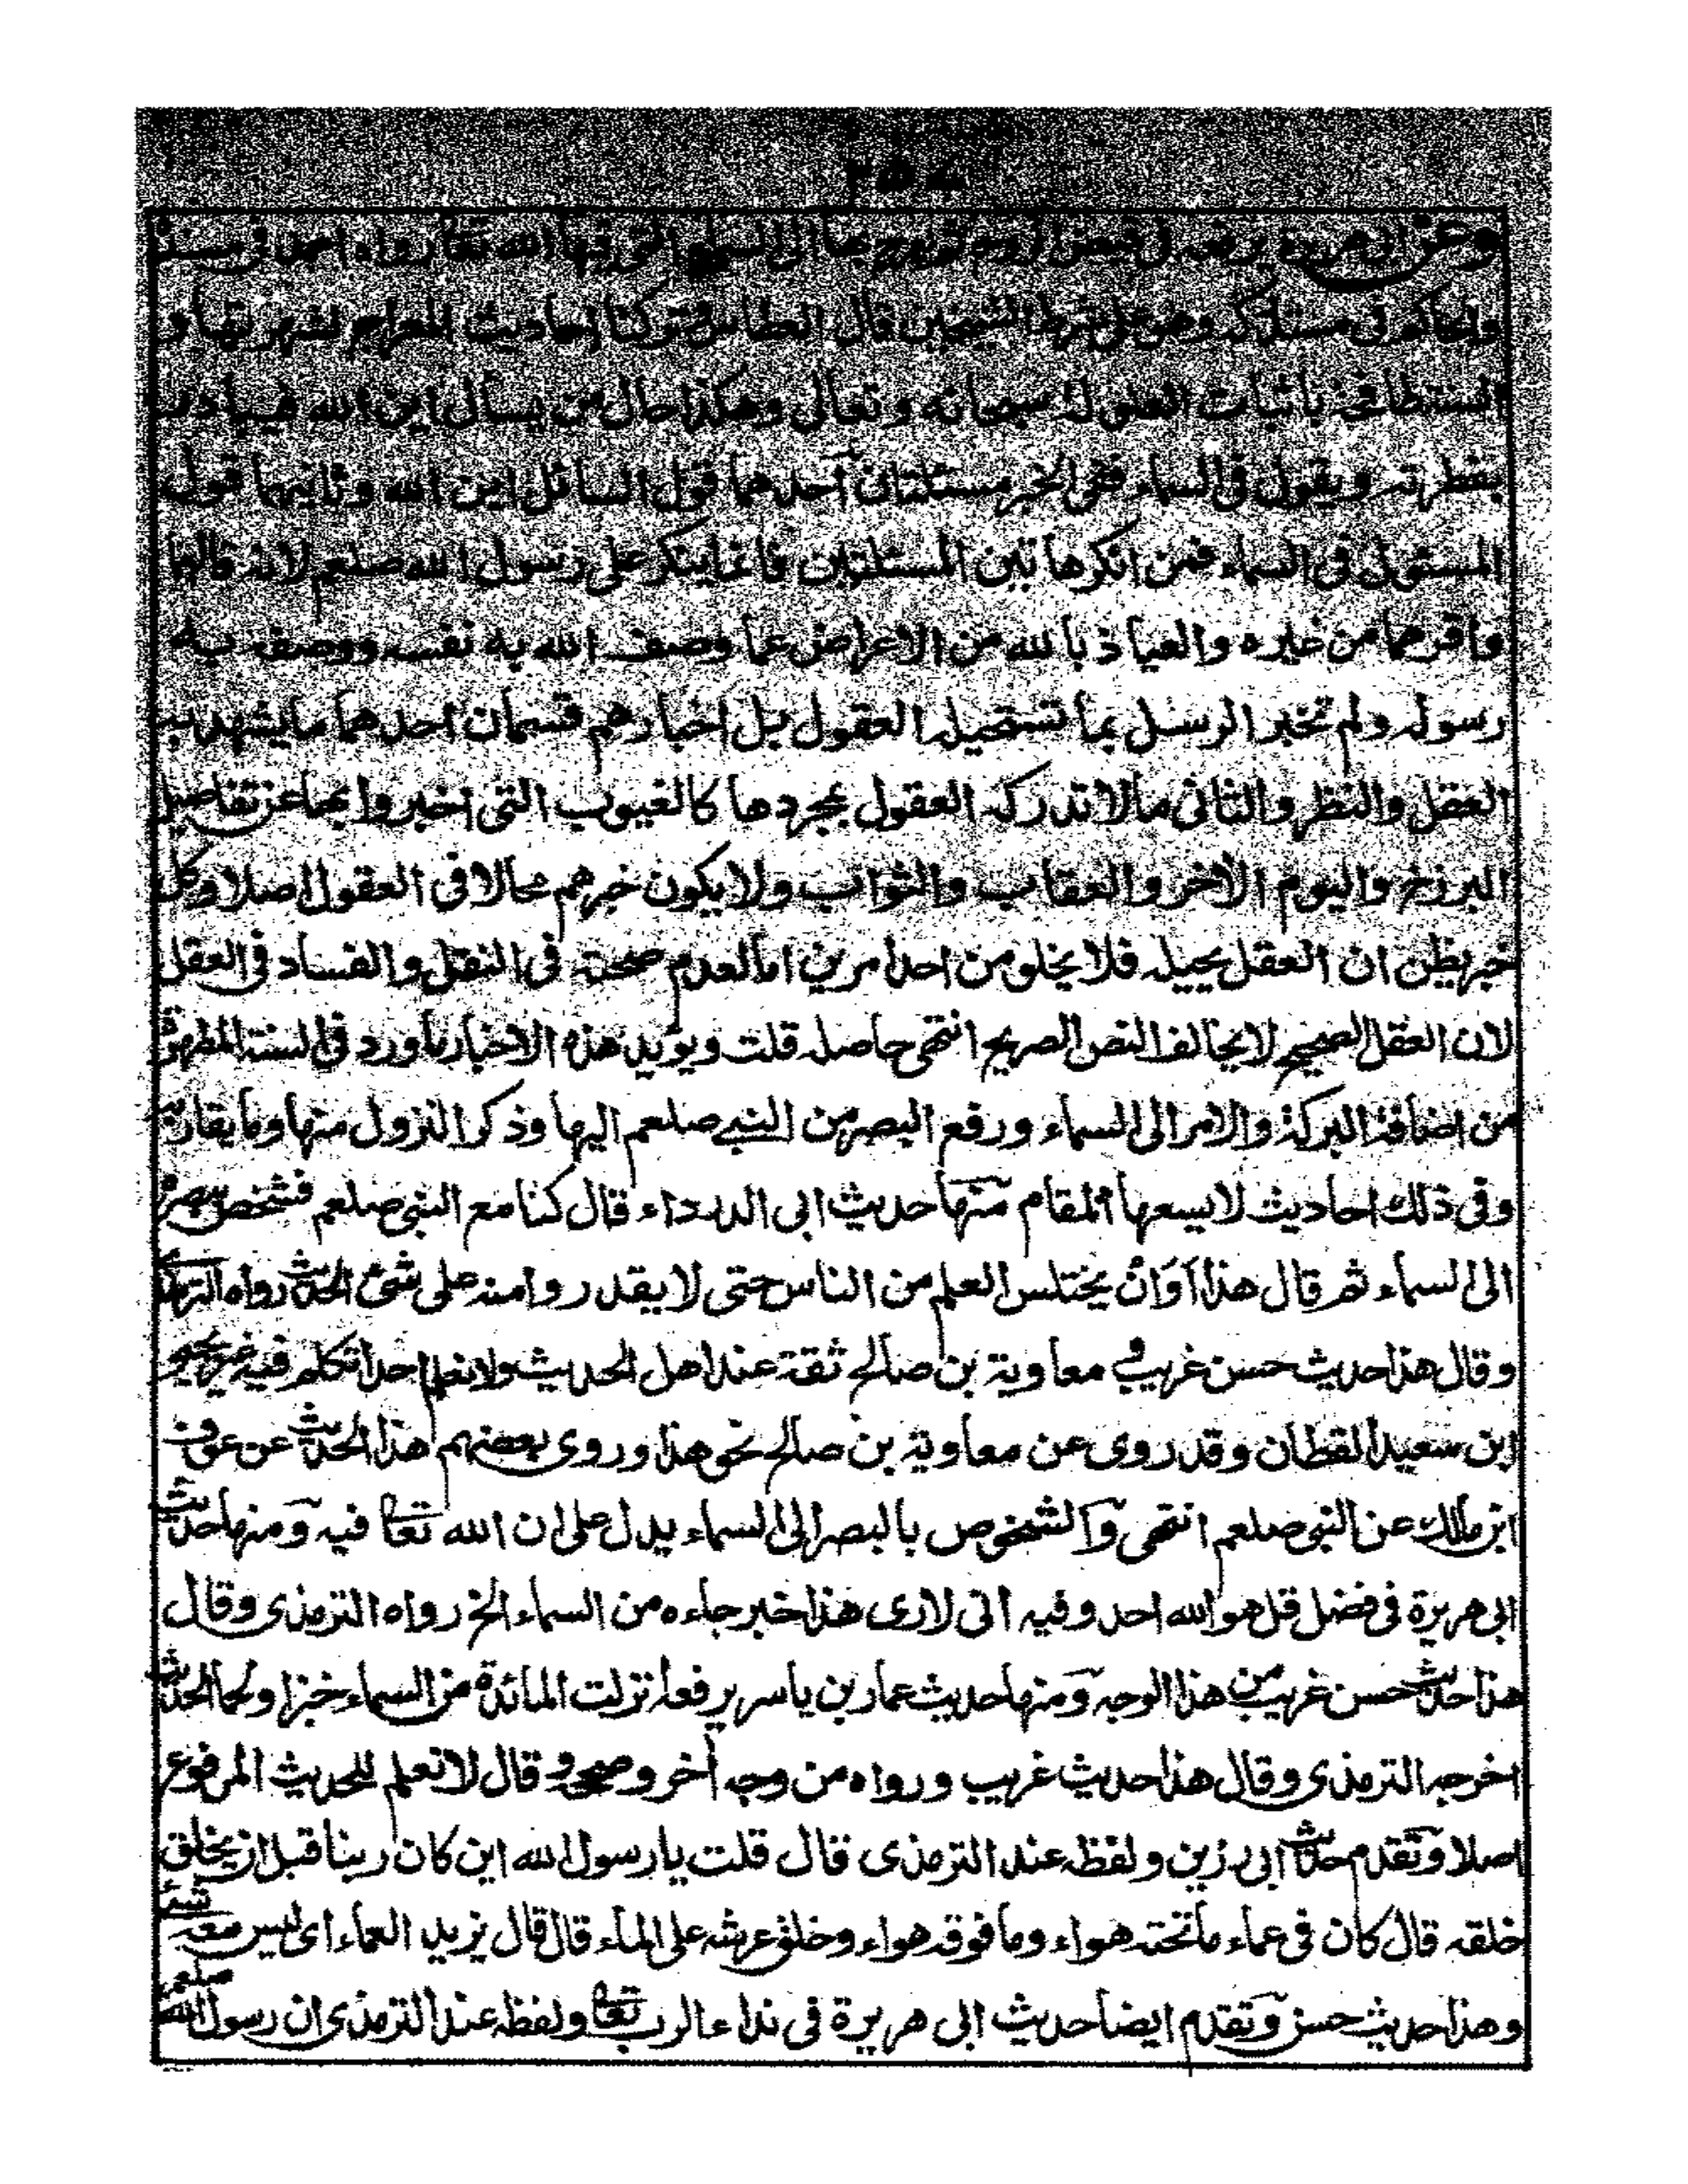 وعن ابى هريرة يرفعه فى قبض الروح ثم يعرج بها الى السماء التى فيها الله تعا رواه احمد فى مسنده
والحاكم فى مستدركه وهو على شرط الشيخين قال العطاس وتركنا احاديث المعراج لشهرتها و
باثبات العلو لله سبحانه وتعالى وهكذا حال من يسأل اين الله فيبادر
بفطرته ويقول فى السماء ففى الخبر مسئلتان احدهما قول السائل اين الله وثانيهما قول
المسئول فى السماء فمن انكر هاتين المسئلتين فانما ينكر على رسول الله صلعم لانه قالهما
واقرهما من غيره والعياذ بالله من الاعراض عما وصف الله به نفسه ووصف به
رسوله ولم تخبر الرسل بما تستحيله العقول بل اخبارهم قسمان احدهما ما يشهد به
العقل والنظر والثانى مالا تدركه العقول بمجردها كالغيوب التى اخبروا بها عن تفاصيل
البرزخ واليوم الأخر والعقاب والثواب ولا يكون خبرهم محالا فى العقول اصلا وكل
خبر يظن ان العقل يحيله فلا يخلو من احد امرين اما لعدم صحته فى النقل والفساد فى العقل
لان العقل الصحيح لا يخالف النص الصريح انتهى حاصله قلت ويؤيد هذه الاخبار ما ورد فى السنة المطهرة
من اضافة البركة والامر الى السماء ورفع البصر من النبى صلعم اليها وذكر النزول منها وما يقاربه
وفى ذلك احاديث لا يسعها المقام منها حديث ابى الدرداء قال كنا مع النبى صلعم فشخص ببصره
الى السماء ثم قال هذا اوان يختلس العلم من الناس حتى لا يقدروا منه على شئ الحديث رواه الترمذى
وقال هذا حديث حسن غريب و معاوية بن صالح ثقة عند اهل الحديث ولا نعلم احدا تكلم فيه غير يحيى
ابن سعيد القطان وقد روى عن معاوية بن صالح نحو هذا وروى بعضهم هذا الحديث عن عوف
ابن مالك عن النبى صلعم انتهى والشخوص بالبصر الى السماء يدل على ان الله تعا فيه ومنها حديث
ابى هريرة فى فضل قل هو الله احد وفيه انى لارى هذا خبر جاءه من السماء الخ رواه الترمذى وقال
هذا حديث حسن غريب من هذا الوجه ومنها حديث عمار بن ياسر يرفعه انزلت المائدة من السماء خبزا ولحما الحديث
اخرجه الترمذى وقال هذا حديث غريب ورواه من وجه أخر وصححه وقال لا نعلم للحديث المرفوع
اصلا وتقدم حديث ابى رزين ولفظه عند الترمذى قال قلت يا رسول الله اين كان ربنا قبل ان يخلق
خلقه قال كان فى عماء ما تحته هواء وما فوقه هواء وخلق عرشه على الماء قال قال يزيد العماء اى ليس معه شئ
وهذا حديث حسن وتقدم ايضا حديث ابى هريرة فى نداء الرب تعا ولفظه عند الترمذى ان رسول الله صلعم